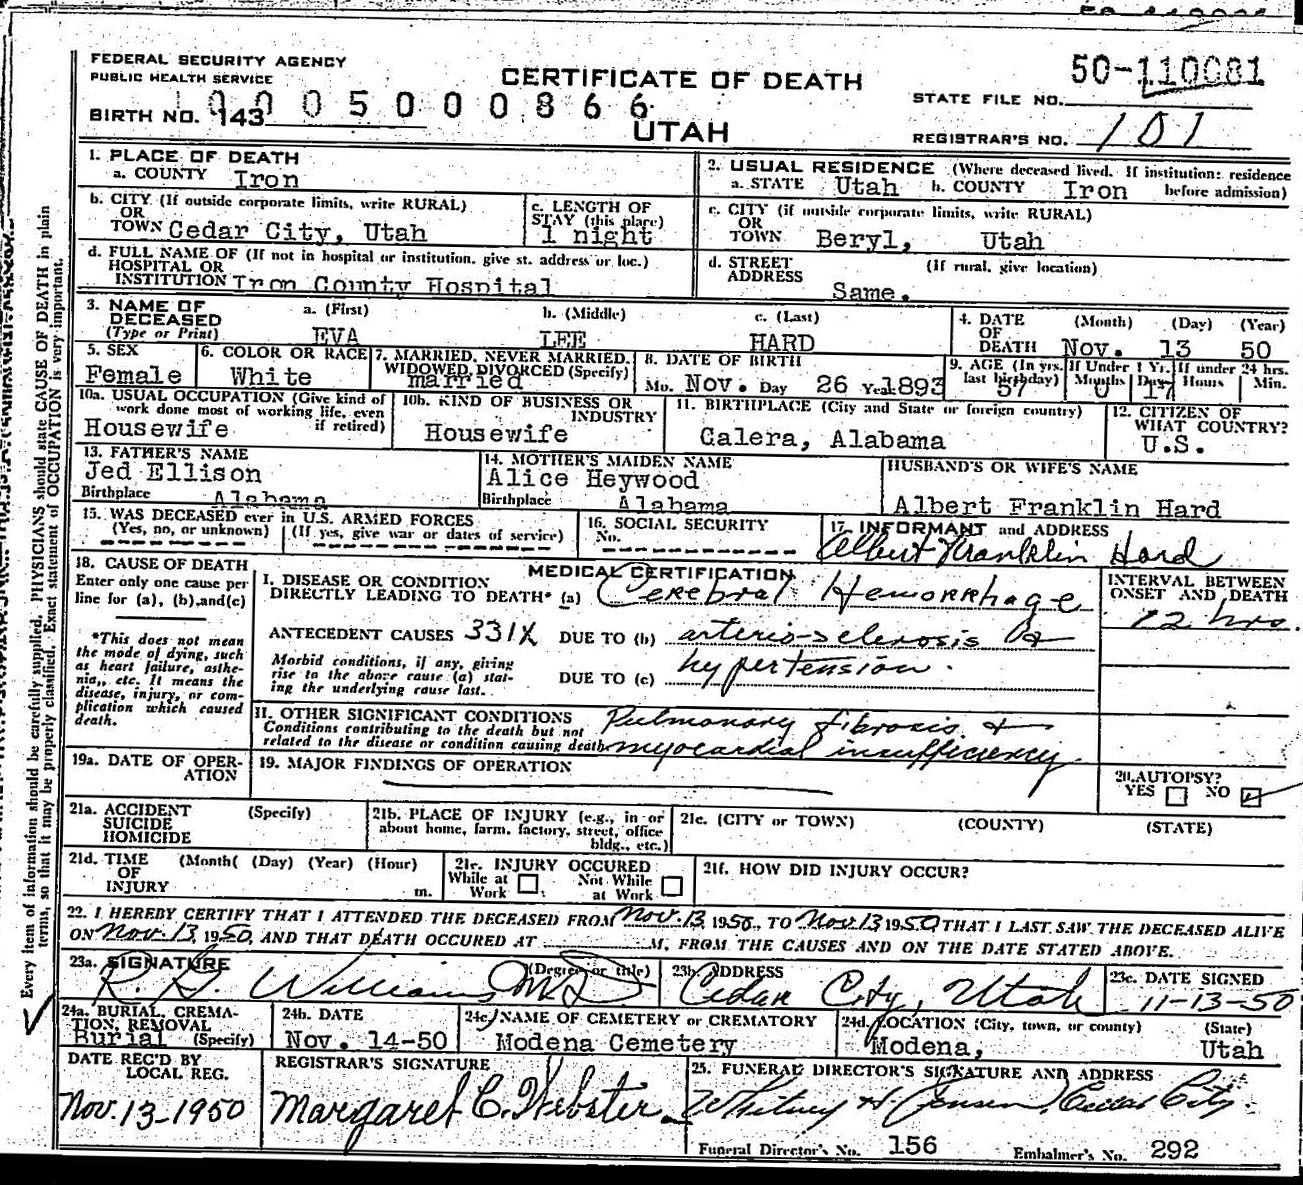 FEDERAL SECURITY AGENCY
PUBLIC HEALTH SERVICE
CERTIFICATE OF DEATH
50-110081
STATE FILE NO.
BIRTH NO. 143 0005000866
UTAH
REGISTRAR'S NO. 101
1. PLACE OF DEATH
a. COUNTY Iron
2. USUAL RESIDENCE (Where deceased lived. If institution: residence before admission)
a. STATE Utah b. COUNTY Iron
b. CITY (If outside corporate limits, write RURAL)
OR
TOWN Cedar City, Utah
c. LENGTH OF
STAY (this place)
1 night
c. CITY (if outside corporate limits, write RURAL)
OR
TOWN Beryl, Utah
d. FULL NAME OF (If not in hospital or institution, give st. address or loc.)
HOSPITAL OR
INSTITUTION Iron County Hospital
d. STREET (If rural, give location)
ADDRESS Same.
3. NAME OF
DECEASED
(Type or Print)
a. (First) b. (Middle) c. (Last)
EVA LEE HARD
4. DATE (Month) (Day) (Year)
OF
DEATH Nov. 13 50
5. SEX
Female
6. COLOR OR RACE
White
7. MARRIED, NEVER MARRIED,
WIDOWED, DIVORCED (Specify)
married
8. DATE OF BIRTH
Mo. Nov. Day 26 Year 1893
9. AGE (In yrs. last birthday) 57
If Under 1 Yr. Months 0 Days 17
If under 24 hrs. Hours Min.
10a. USUAL OCCUPATION (Give kind of
work done most of working life, even
if retired)
Housewife
10b. KIND OF BUSINESS OR
INDUSTRY
Housewife
11. BIRTHPLACE (City and State or foreign country)
Calera, Alabama
12. CITIZEN OF
WHAT COUNTRY?
U.S.
13. FATHER'S NAME
Jed Ellison
Birthplace Alabama
14. MOTHER'S MAIDEN NAME
Alice Heywood
Birthplace Alabama
HUSBAND'S OR WIFE'S NAME
Albert Franklin Hard
15. WAS DECEASED ever in U.S. ARMED FORCES
(Yes, no, or unknown) (If yes, give war or dates of service)
16. SOCIAL SECURITY
No.
17. INFORMANT and ADDRESS
Albert Franklin Hard
18. CAUSE OF DEATH
Enter only one cause per
line for (a), (b), and (c)
*This does not mean
the mode of dying, such
as heart failure, asthe-
nia,, etc. It means the
disease, injury, or com-
plication which caused
death.
MEDICAL CERTIFICATION
I. DISEASE OR CONDITION
DIRECTLY LEADING TO DEATH* (a) Cerebral Hemorrhage
INTERVAL BETWEEN
ONSET AND DEATH
12 hrs.
ANTECEDENT CAUSES 331X DUE TO (b) arterio-sclerosis &
Morbid conditions, if any, giving
rise to the above cause (a) stat-
ing the underlying cause last.
DUE TO (c) hypertension.
II. OTHER SIGNIFICANT CONDITIONS
Conditions contributing to the death but not
related to the disease or condition causing death
Pulmonary fibrosis &
myocardial insufficiency
19a. DATE OF OPER-
ATION
19. MAJOR FINDINGS OF OPERATION
20. AUTOPSY?
YES NO
21a. ACCIDENT (Specify)
SUICIDE
HOMICIDE
21b. PLACE OF INJURY (e.g., in or
about home, farm, factory, street, office
bldg., etc.)
21c. (CITY or TOWN) (COUNTY) (STATE)
21d. TIME (Month( (Day) (Year) (Hour)
OF
INJURY m.
21e. INJURY OCCURED
While at Work Not While at Work
21f. HOW DID INJURY OCCUR?
22. I HEREBY CERTIFY THAT I ATTENDED THE DECEASED FROM Nov. 13 1950, TO Nov 13 1950 THAT I LAST SAW THE DECEASED ALIVE
ON Nov. 13 1950, AND THAT DEATH OCCURED AT M, FROM THE CAUSES AND ON THE DATE STATED ABOVE.
23a. SIGNATURE (Degree or title)
R. G. Williams MD
23b. ADDRESS
Cedar City, Utah
23c. DATE SIGNED
11-13-50
24a. BURIAL, CREMA-
TION, REMOVAL
Burial (Specify)
24b. DATE
Nov. 14-50
24c. NAME OF CEMETERY or CREMATORY
Modena Cemetery
24d. LOCATION (City, town, or county) (State)
Modena, Utah
DATE REC'D BY
LOCAL REG.
Nov. 13-1950
REGISTRAR'S SIGNATURE
Margaret C. Webster
25. FUNERAL DIRECTOR'S SIGNATURE AND ADDRESS
Whitney H Jensen, Cedar City
Funeral Director's No. 156 Embalmer's No. 292
Every item of information should be carefully supplied. PHYSICIANS should state CAUSE OF DEATH in plain
terms, so that it may be properly classified. Exact statement of OCCUPATION is very important.